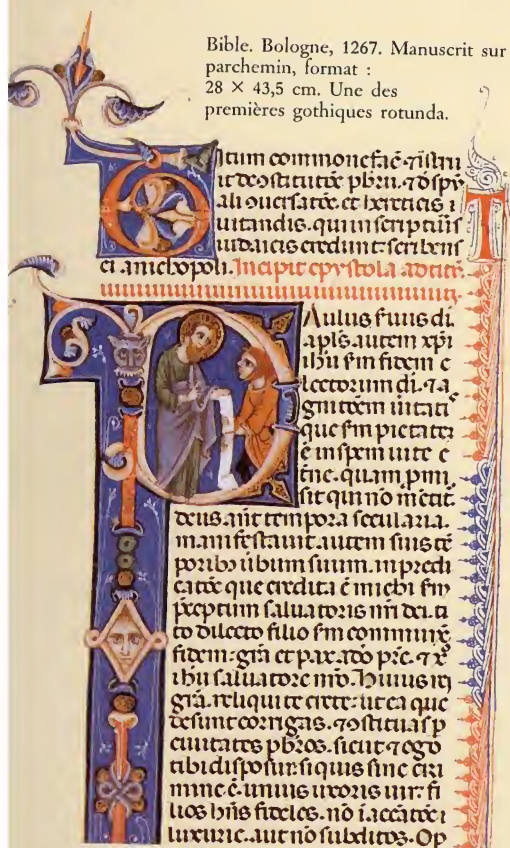 Bible. Bologne, 1267. Manuscrit sur
parchemin, format :
28 × 43,5 cm. Une des
premières gothiques rotunda.
Titum commonefac̄ ⁊ īstru
it de ꝯstitutōe pbrii. ⁊ d spūͥ
ali ꝯuersatōe. et hereticis i
uitandis. qui in scriptuīs
iudaicis credunt: scribens
ei a nichopoli. Incipit epystola ad titū.
Paulus s̄uus di.
apl̄s. autem xp̄i
ih̄u sm̄ fidem e
lectorum di. ⁊ a
gnitōem uitatis
que sm̄ pietatē
ē in spem uite e
t̄ne. quam pmi
sit qui nō mētit̄
deus. an̄t tempora secularia.
manifestauit autem suis tē
poribꝫ ūbum suum. in predi
catōe que credita ē michi sm̄
p̄ceptum saluatoris nr̄i dei. ti
to dilecto filio sm̄ communē
fidem: gr̄a et pax. a dō pr̄e. ⁊ xp̄o
ih̄u saluatore nr̄o. Huius rei
gr̄a. reliqui te crete: ut ea que
desunt corrigas. ⁊ ꝯstituas p
ciuitates pb̄ros. sicut ⁊ ego
tibi disposui. siquis sine cri
mine ē. unius uxoris uir: fi
lios hn̄s fideles. nō ī accatōe
luxurie. aut nō subditos. Op
T